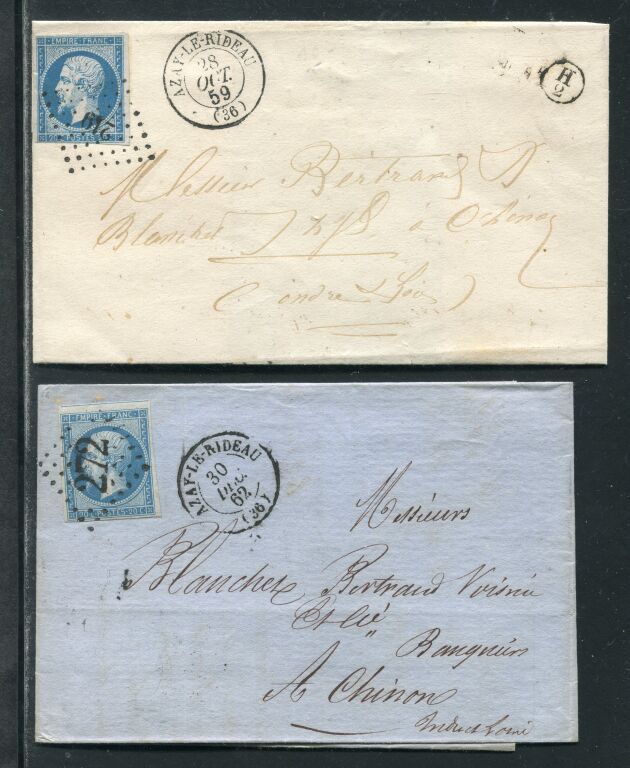 EMPIRE FRANC
20 C POSTES 20 C
219
AZAY-LE-RIDEAU
28
OCT.
59
(36)
H
2
Messieurs Bertrand
Blanchet à Chinon
(Indre & Loire)
EMPIRE FRANC
20 C POSTES 20 C
272
AZAY-LE-RIDEAU
30
DEC.
62
(36)
Messieurs
Blanchet Bertrand Voisine
Et Cie
" Banquiers
A Chinon
Indre et Loire